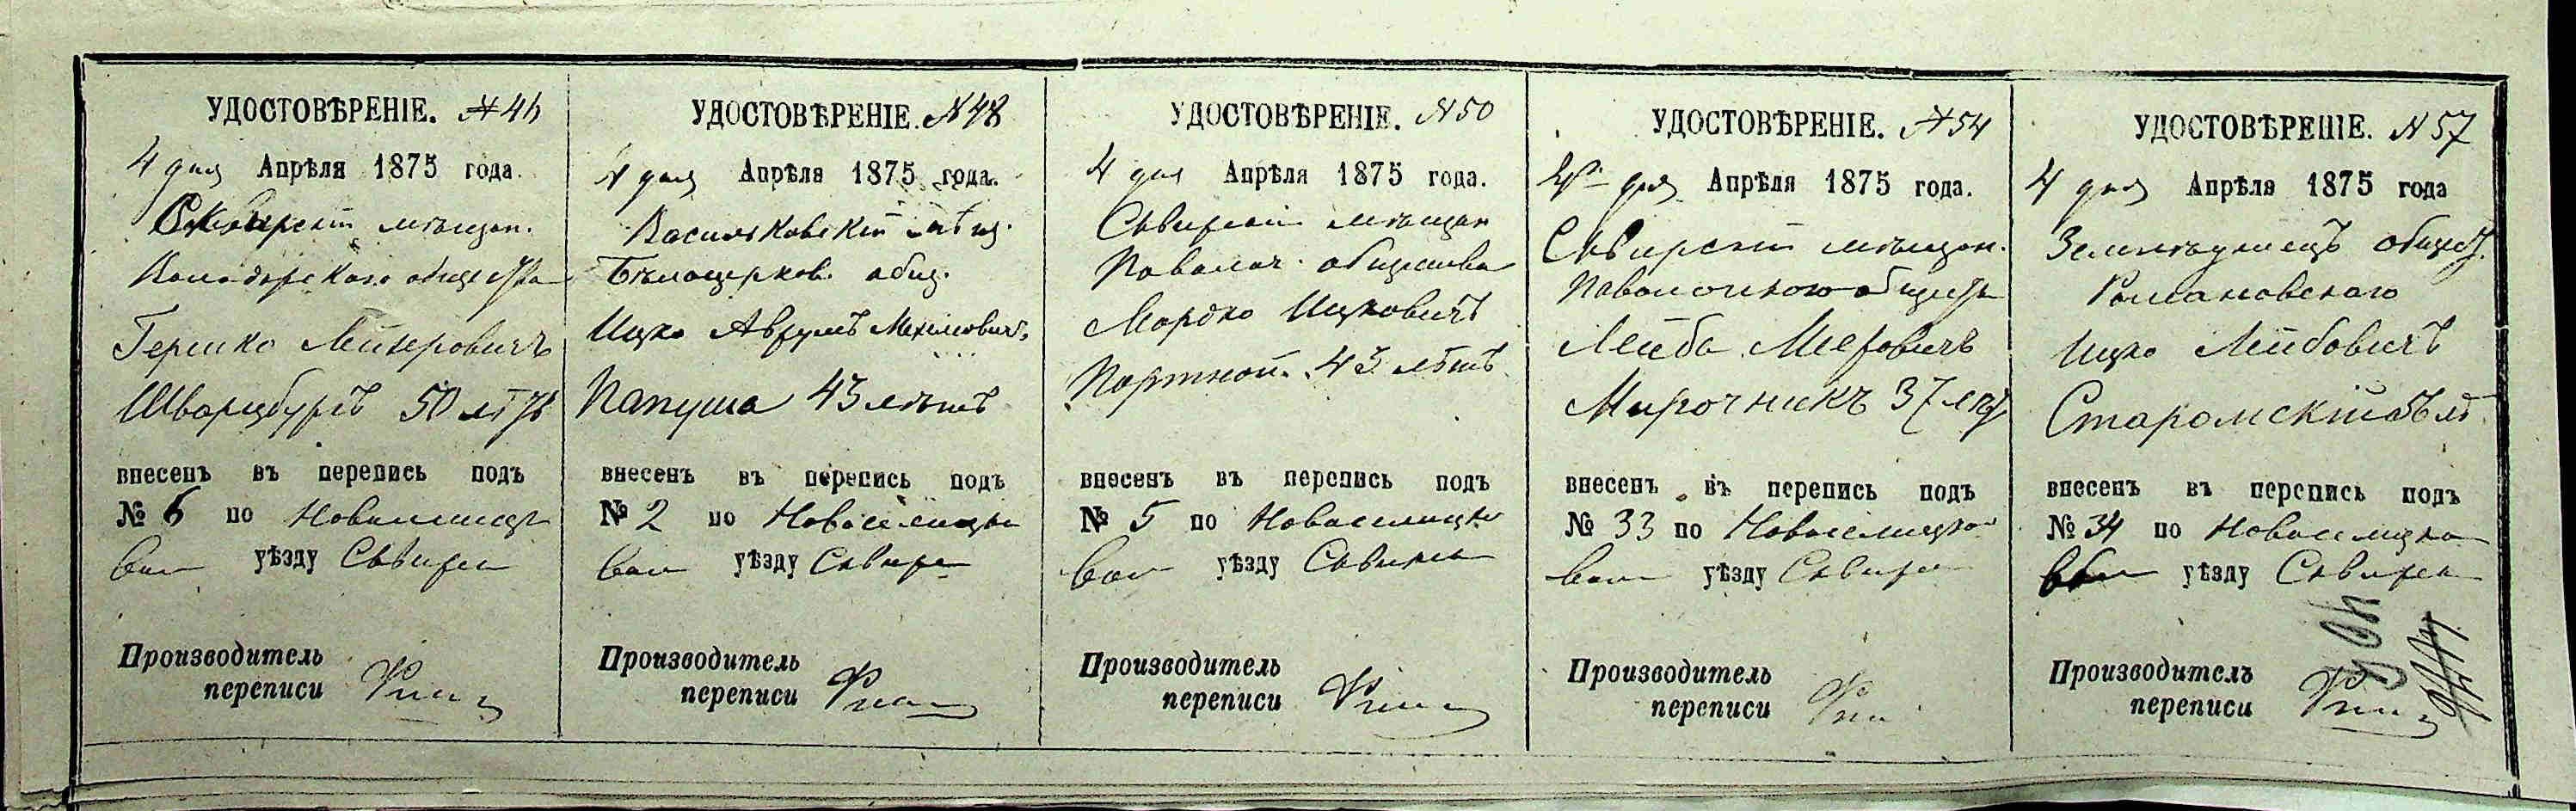 УДОСТОВѢРЕНІЕ. № 46
4 дня Апрѣля 1875 года.
Сквирскій мѣщан.
Володарскаго общества
Гершко Лейзеровичъ
Шварцбургъ 50 лѣтъ
внесенъ въ перепись подъ
№ 6 по Новоселицк
вол уѣзду Сквирск
Производитель
переписи
УДОСТОВѢРЕНІЕ. № 48
4 дня Апрѣля 1875 года.
Васильковскій мѣщ.
Бѣлоцерков. общ.
Ицко Аврумъ Мехелевичъ
Папуша 43 лѣтъ
внесенъ въ перепись подъ
№ 2 по Новоселицко
вол уѣзду Сквирс
Производитель
переписи
УДОСТОВѢРЕНІЕ. № 50
4 дня Апрѣля 1875 года.
Сквирскій мѣщан
Паволоч. общества
Мордко Ицковичъ
Портной. 43 лѣтъ.
внесенъ въ перепись подъ
№ 5 по Новоселицко
вол уѣзду Сквирск
Производитель
переписи
УДОСТОВѢРЕНІЕ. № 54
4го дня Апрѣля 1875 года.
Сквирскій мѣщан.
Паволочского общества
Лейба Мееровичъ
Мирочникъ 37 лѣтъ
внесенъ въ перепись подъ
№ 33 по Новоселицко
вол уѣзду Сквирс
Производитель
переписи
УДОСТОВѢРЕНІЕ. № 57
4 дня Апрѣля 1875 года
Землевѣделецъ общест.
Романовскаго
Ицко Лейбовичъ
Старомскій лѣ
внесенъ въ перепись подъ
№ 34 по Новоселицко
вол уѣзду Сквирск
Производитель
переписи